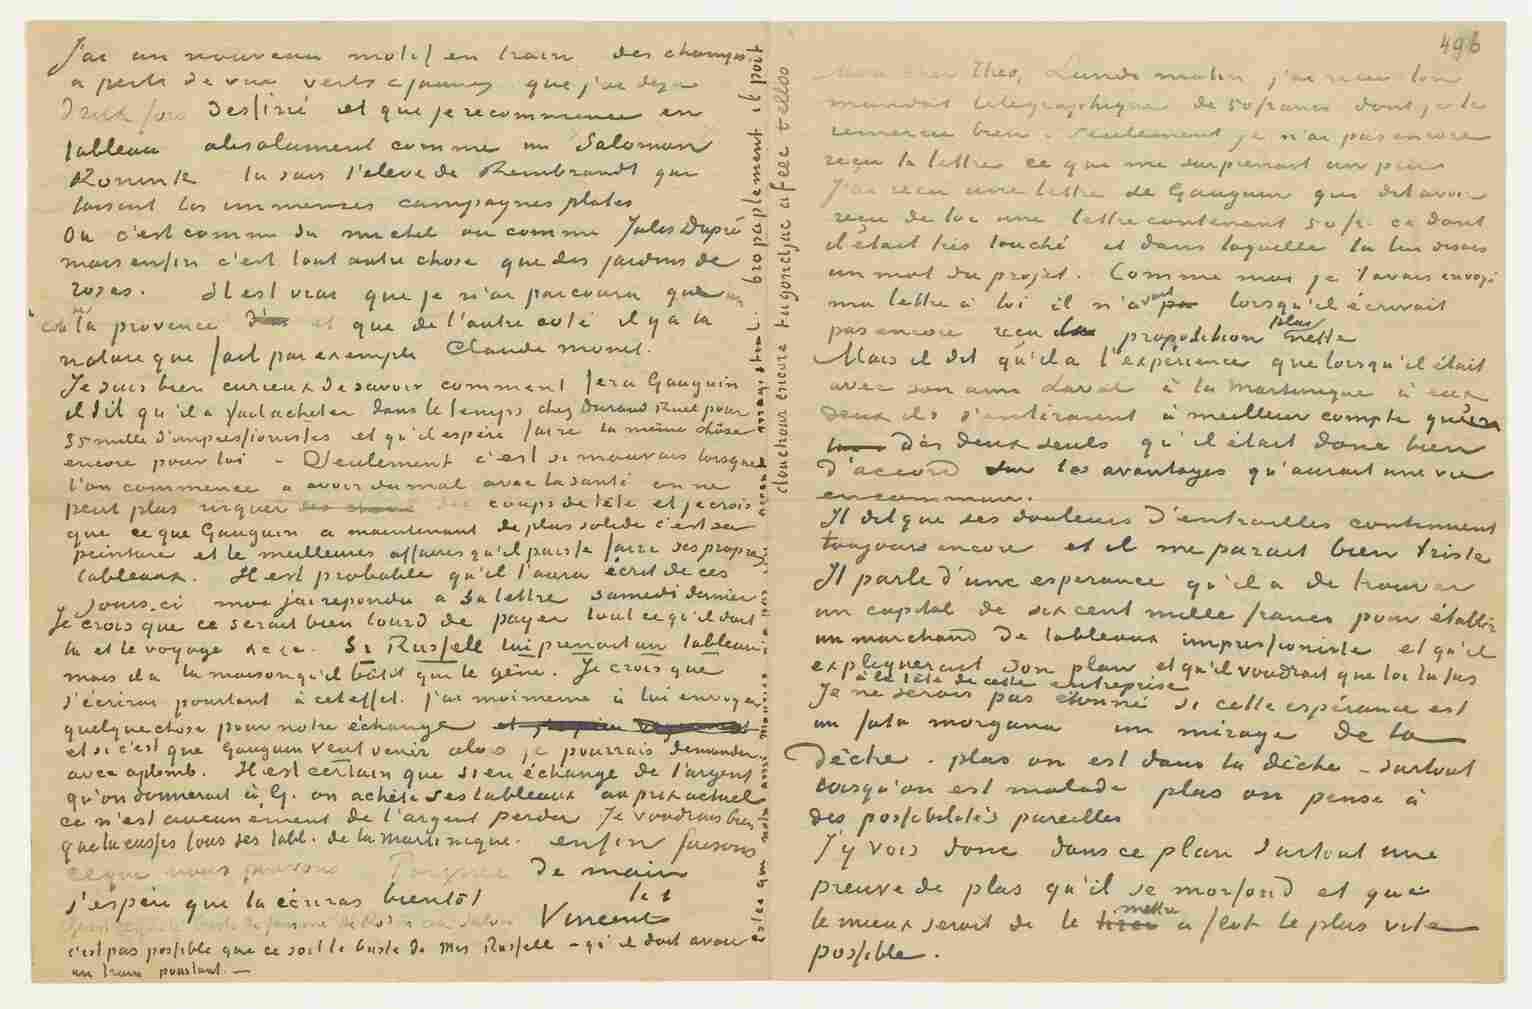 496
Mon cher Theo, Lundi matin j'ai reçu ton
mandat télégraphique de 50 francs dont je te
remercie bien. Seulement je n'ai pas encore
reçu ta lettre ce que me surprenait un peu
J'ai reçu une lettre de Gauguin qui dit avoir
reçu de toi une lettre contenant 50 fr. ce dont
il était très touché et dans laquelle tu lui disais
un mot du projet. Comme moi je t'avais envoyé
ma lettre à lui il n'avait pas lorsqu'il écrivait
pas encore reçu la proposition plus nette
Mais il dit qu'il a l'expérience que lorsqu'il était
avec son ami Laval à la Martinique à eux
deux ils s'entiraient à meilleur compte qu'un
dès deux seuls qu'il était donc bien
d'accord sur les avantages qu'aurait une vie
en commun.
Il dit que ses douleurs d'entrailles continuent
toujours encore et il me parait bien triste
Il parle d'une espérance qu'il a de trouver
un capital de six cent mille francs pour établir
un marchand de tableaux impressioniste et qu'il
expliquerait son plan et qu'il voudrait que toi tu fus
à la tête de cette entreprise
Je ne serais pas étonné si cette espérance est
un fata morgana un mirage de la
dèche. plus on est dans la dèche – surtout
lorsqu'on est malade plus on pense à
des possibilités pareilles
J'y vois donc dans ce plan surtout une
preuve de plus qu'il se morfond et que
le mieux serait de le mettre à flot le plus vite
possible.
J'ai un nouveau motif en train des champs
a perte de vue verts & jaunes que j'ai déjà
deux fois dessiné et que je recommence en
tableau absolument comme un Salomon
Konink tu sais l'élève de Rembrandt qui
faisait les immenses campagnes plates
Ou c'est comme du michel ou comme Jules Dupré
mais enfin c'est tout autre chose que des jardins de
roses. Il est vrai que je n'ai parcouru qu'un
côté de la provence et que de l'autre coté il y a la
nature que fait par exemple Claude Monet.
Je suis bien curieux de savoir comment fera Gauguin
il dit qu'il a fait acheter dans le temps chez Durand Ruel pour
35 mille d'impressionistes et qu'il espère faire la même chose
encore pour toi – Seulement c'est si mauvais lorsque
l'on commence a avoir du mal avec la santé on ne
peut plus risquer des coups de tête et je crois
que ce que Gauguin a maintenant de plus solide c'est sa
peinture et le meilleures affaires qu'il puisse faire ses propres
tableaux. Il est probable qu'il t'aura écrit de ces
jours-ci moi j'ai repondu à sa lettre samedi dernier
Je crois que ce serait bien lourd de payer tout ce qu'il doit
là et le voyage &c &c. Si Russell lui prenait un tableau
mais il a la maison qu'il bâtit qui le gêne. Je crois que
j'écrirai pourtant à cet effet. J'ai moimeme à lui envoyer
quelque chose pour notre échange
et si c'est que Gauguin veut venir alors je pourrais demander
avec aplomb. Il est certain que si en échange de l'argent
qu'on donnerait à G. on achète ses tableaux au prix actuel
ce n'est aucunement de l'argent perdu. Je voudrais bien
que tu eusses tous ses tabl. de la Martinique. enfin faisons
ce que nous pouvons. Poignée de main
j'espère que tu écriras bientôt
t. à t.
Vincent
Qu'est ce que le buste de femme de Rodin au Salon
c'est pas possible que ce soit le buste de Mrs Russell – qu'il doit avoir
en train pourtant. –
est ce que notre ami Mouriès bropaplement il pout
clouchour encore tugondjac afeec tellos